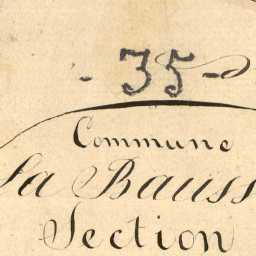 - 35 -
Commune
La Bauss
Section